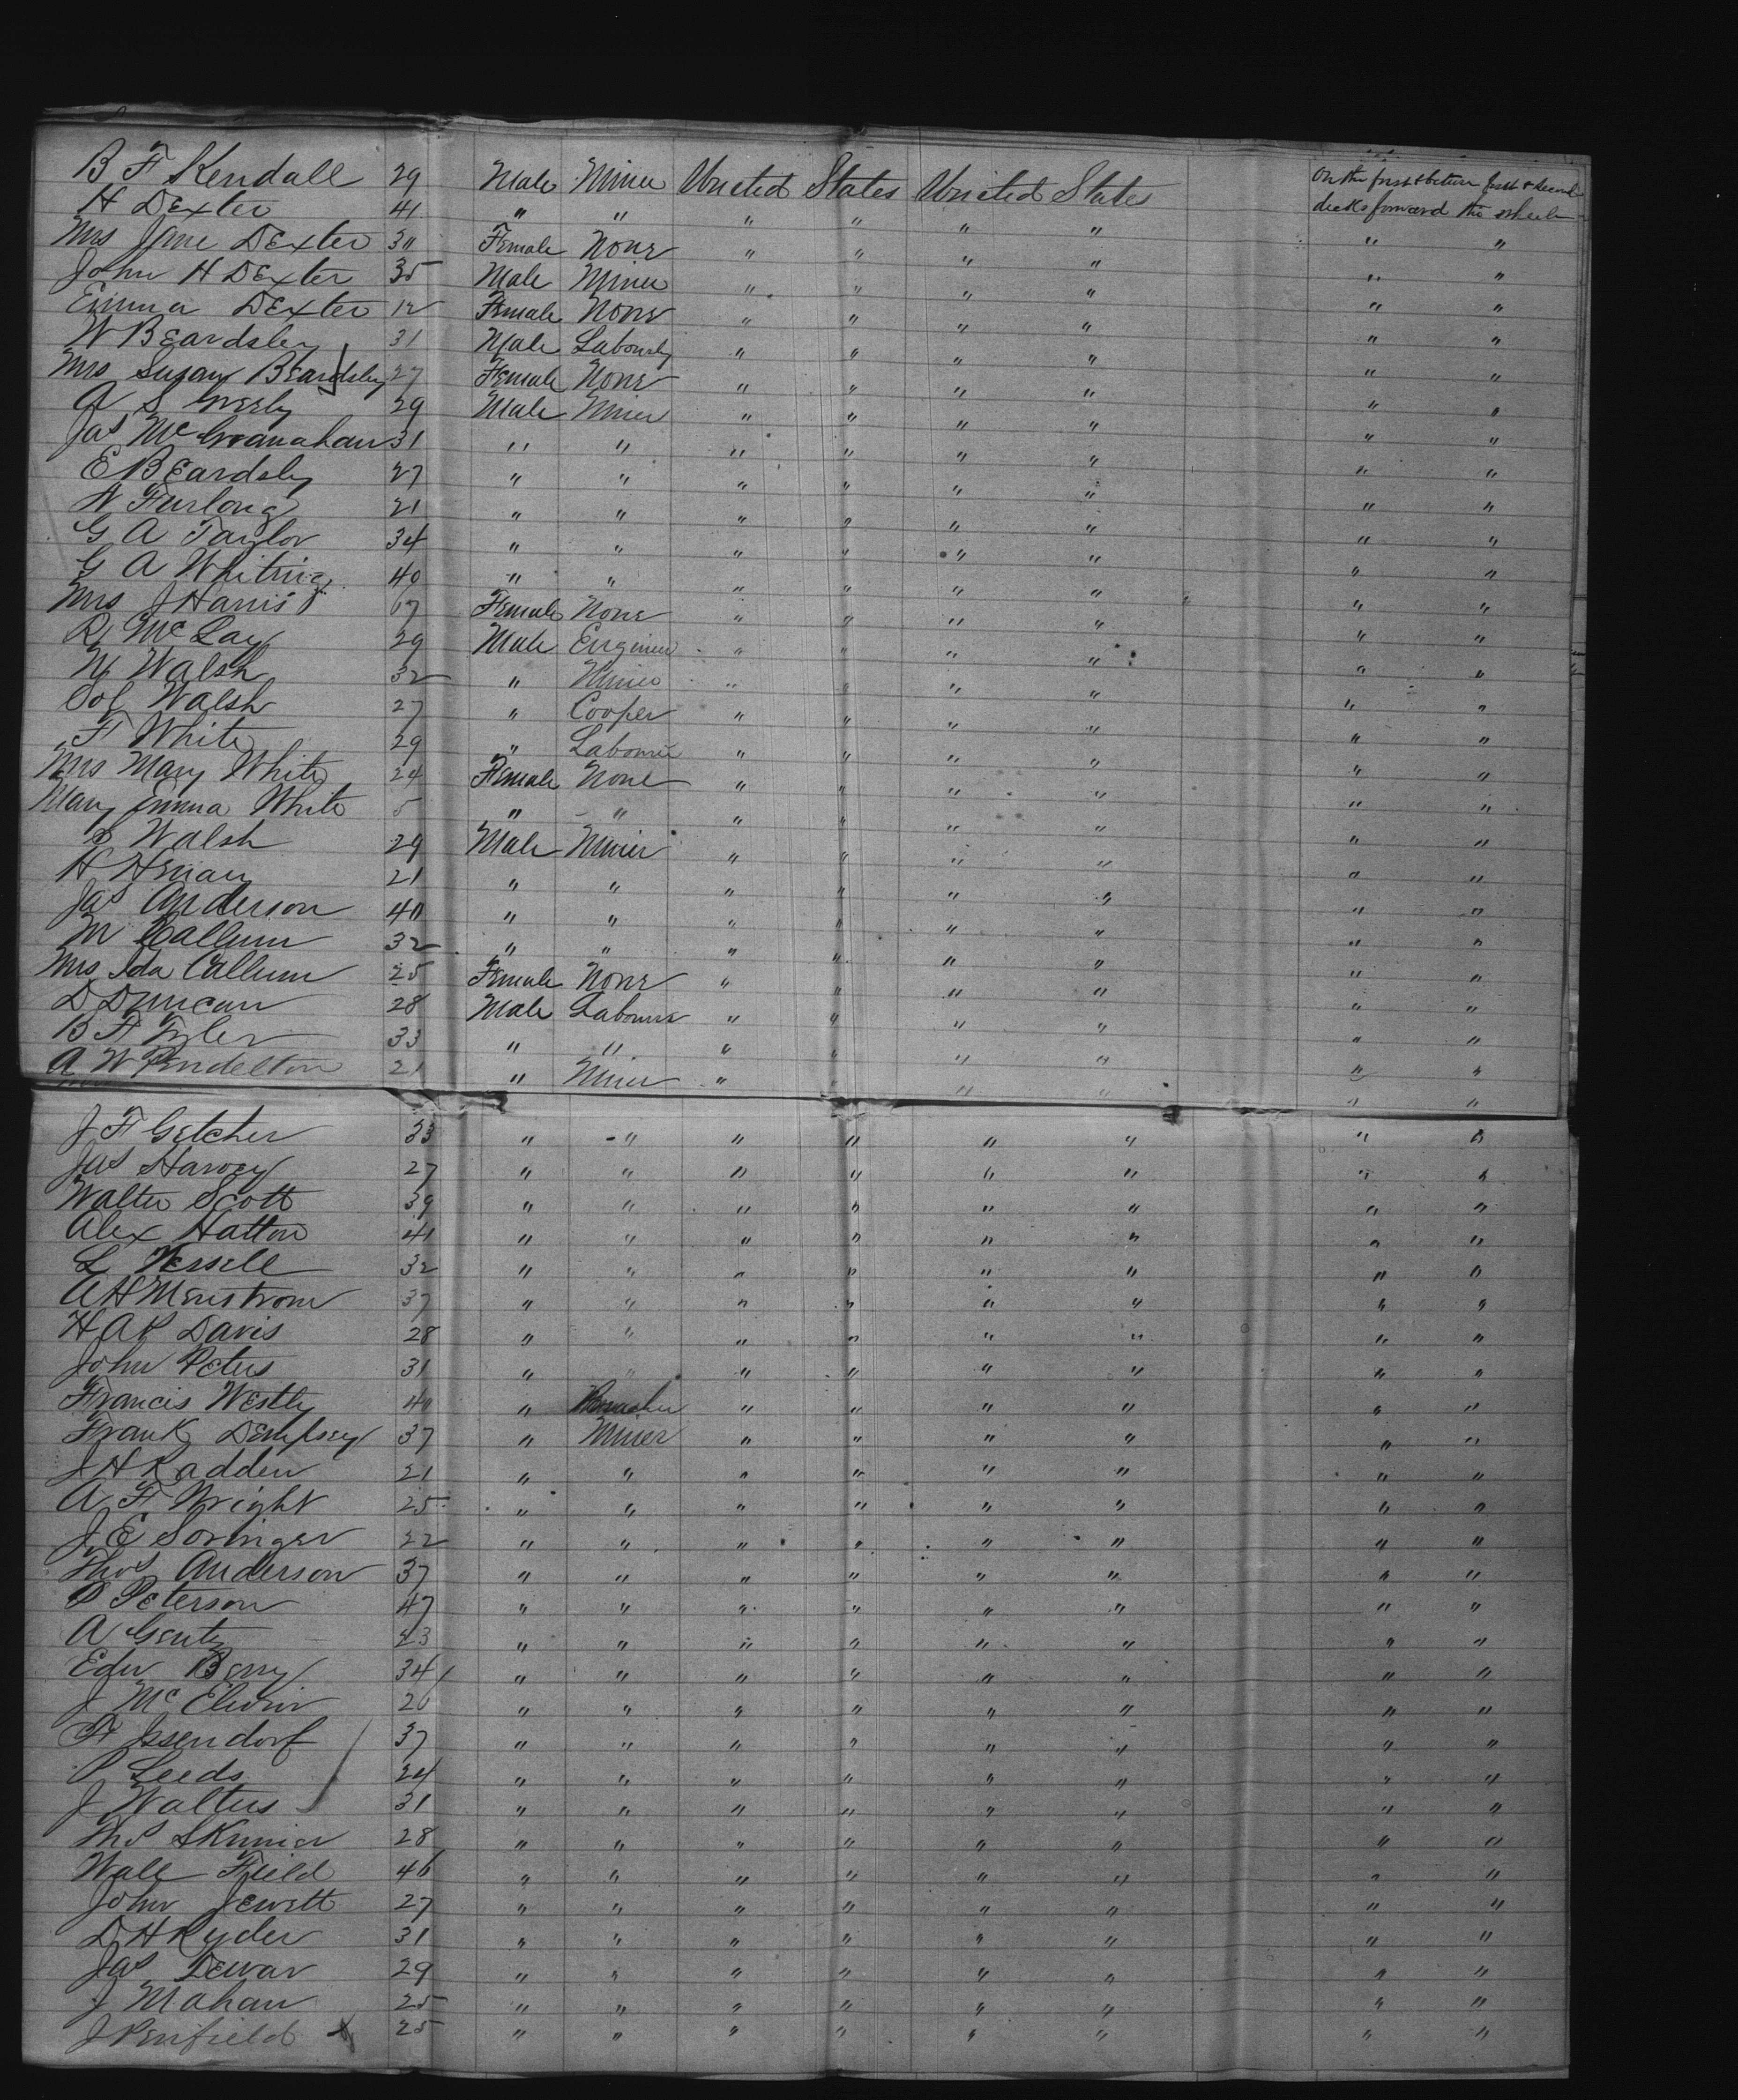 B F Kendall 29 Male Miner United States United States On the first & between first & second
decks forward the wheels
H Dexter 41 " " " " " " " "
Mrs Jane Dexter 30 Female None " " " " " "
John H Dexter 35 Male Miner " " " " " "
Emma Dexter 12 Female None " " " " " "
W Beardsley 31 Male " " " " " "
Mrs Susan Beardsley 27 Female None " " " " " "
A S 29 Male Miner " " " " " "
Jas 31 " " " " " " " "
E Beardsley 27 " " " " " " " "
N Furlong 21 " " " " " " " "
G A Taylor 34 " " " " " " " "
G A Whiting 40 " " " " " " " "
Mrs J Harris 17 Female None " " " " " "
R McLay 29 Male Engineer " " " " " "
Walsh 32 " Miner " " " " " "
Sol Walsh 27 " Cooper " " " " " "
F White 29 " Labourer " " " " " "
Mrs Mary White 24 Female None " " " " " "
Mary Emma White 5 " " " " " " " "
S Walsh 29 Male Miner " " " " " "
H 21 " " " " " " " "
Jas Anderson 40 " " " " " " " "
M Callum 32 " " " " " " " "
Mrs Ida Callum 25 Female None " " " " " "
D Duncan 28 Male Labourer " " " " " "
B F Tyler 33 " " " " " " " "
A W Pendelton 21 " Miner " " " " " "
J F Getcher 33 " " " " " " " "
Jas Harvey 27 " " " " " " " "
Walter Scott 39 " " " " " " " "
Alex Hatton 41 " " " " " " " "
L Wessell 32 " " " " " " " "
A H 37 " " " " " " " "
H A P Davis 28 " " " " " " " "
John Peters 31 " " " " " " " "
Francis Westly 40 " " " " " " "
Frank Dempsey 37 " Miner " " " " " "
J H Radden 21 " " " " " " " "
A F Wright 25 " " " " " " " "
J E 22 " " " " " " " "
Thos Anderson 37 " " " " " " " "
P Peterson 47 " " " " " " " "
A Genty 23 " " " " " " " "
Edw Berry 34 " " " " " " " "
J McElwin 26 " " " " " " " "
F Issendorf 37 " " " " " " " "
P Leeds 24 " " " " " " " "
J Walters 31 " " " " " " " "
Thos Skinner 28 " " " " " " " "
Field 46 " " " " " " " "
John Jewett 27 " " " " " " " "
D H Ryder 31 " " " " " " " "
Jas Dewar 29 " " " " " " " "
J Mahan 25 " " " " " " " "
J Penfield 25 " " " " " " " "